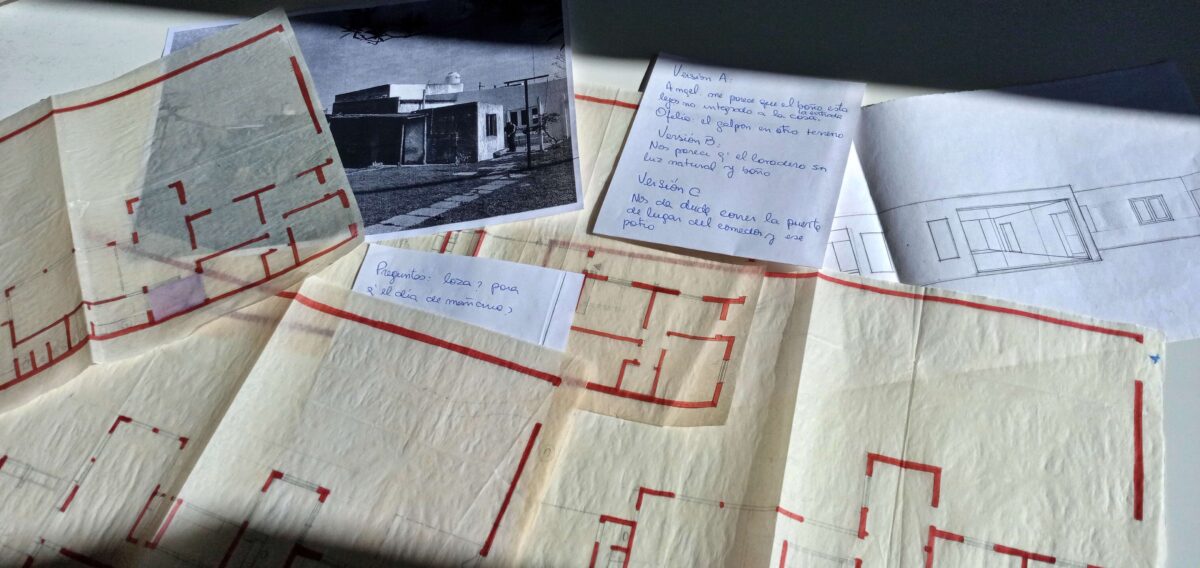 Versión A:
Angel: me parece que el baño esta
lejos no integrado a la casa. la entrada
Ofelia: el galpón en otro terreno
Versión B:
Nos parece q' el lavadero sin
luz natural y baño
Versión C
Nos da duda correr la puerta
de lugar del comedor y ese
patio
Preguntas: loza? para
q' el día de mañana?